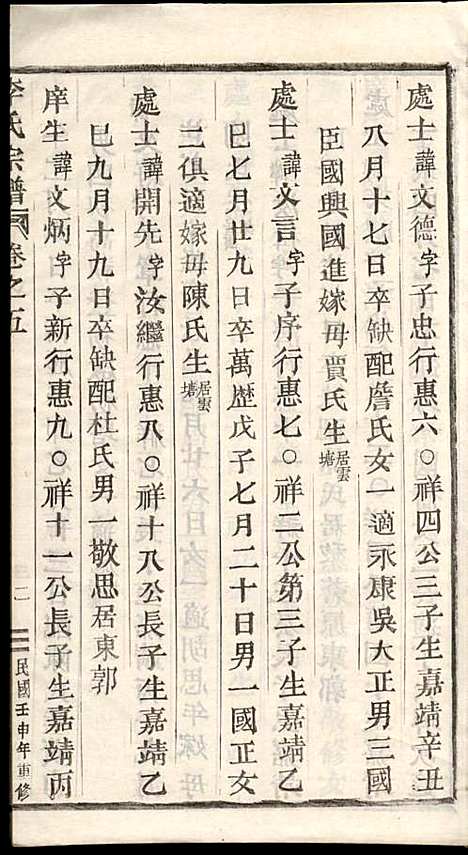 處士諱文德字子忠行惠六○祥四公三子生嘉靖辛丑
八月十七日卒缺配詹氏女一適永康吳大正男三國
臣國興國進嫁母賈氏生居雲塘
處士諱文言字子序行惠七○祥二公第三子生嘉靖乙
巳七月廿九日卒萬歷戊子七月二十日男一國正女
二俱適嫁母陳氏生居雲塘
處士諱開先字汝繼行惠八○祥十八公長子生嘉靖乙
巳九月十九日卒缺配杜氏男一敬思居東郭
庠生諱文炳字子新行惠九○祥十一公長子生嘉靖丙
李氏宗譜 卷之五 二 民國壬申年重修